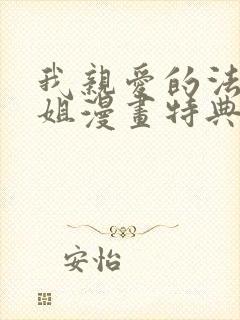 我親愛的法
姐漫畫特典
安怡